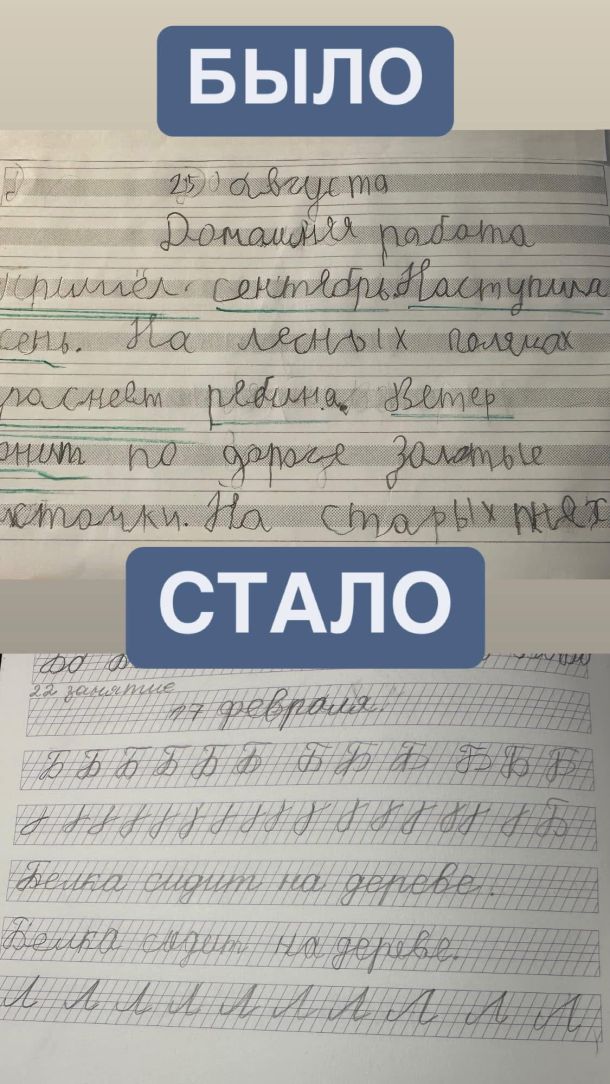 БЫЛО
25 августа
Домашняя работа
пришёл. сентябрь. Наступила
сень. На лесных полянах
раснеет рябина. Ветер
онит по дороге золотые
источки. На старых пнях
СТАЛО
22 занятие
17 февраля
Б Б Б Б Б Б Б Б Б Б Б Б
Б
Белка сидит на дереве.
Белка сидит на дереве.
Л Л Л Л Л Л Л Л Л Л Л